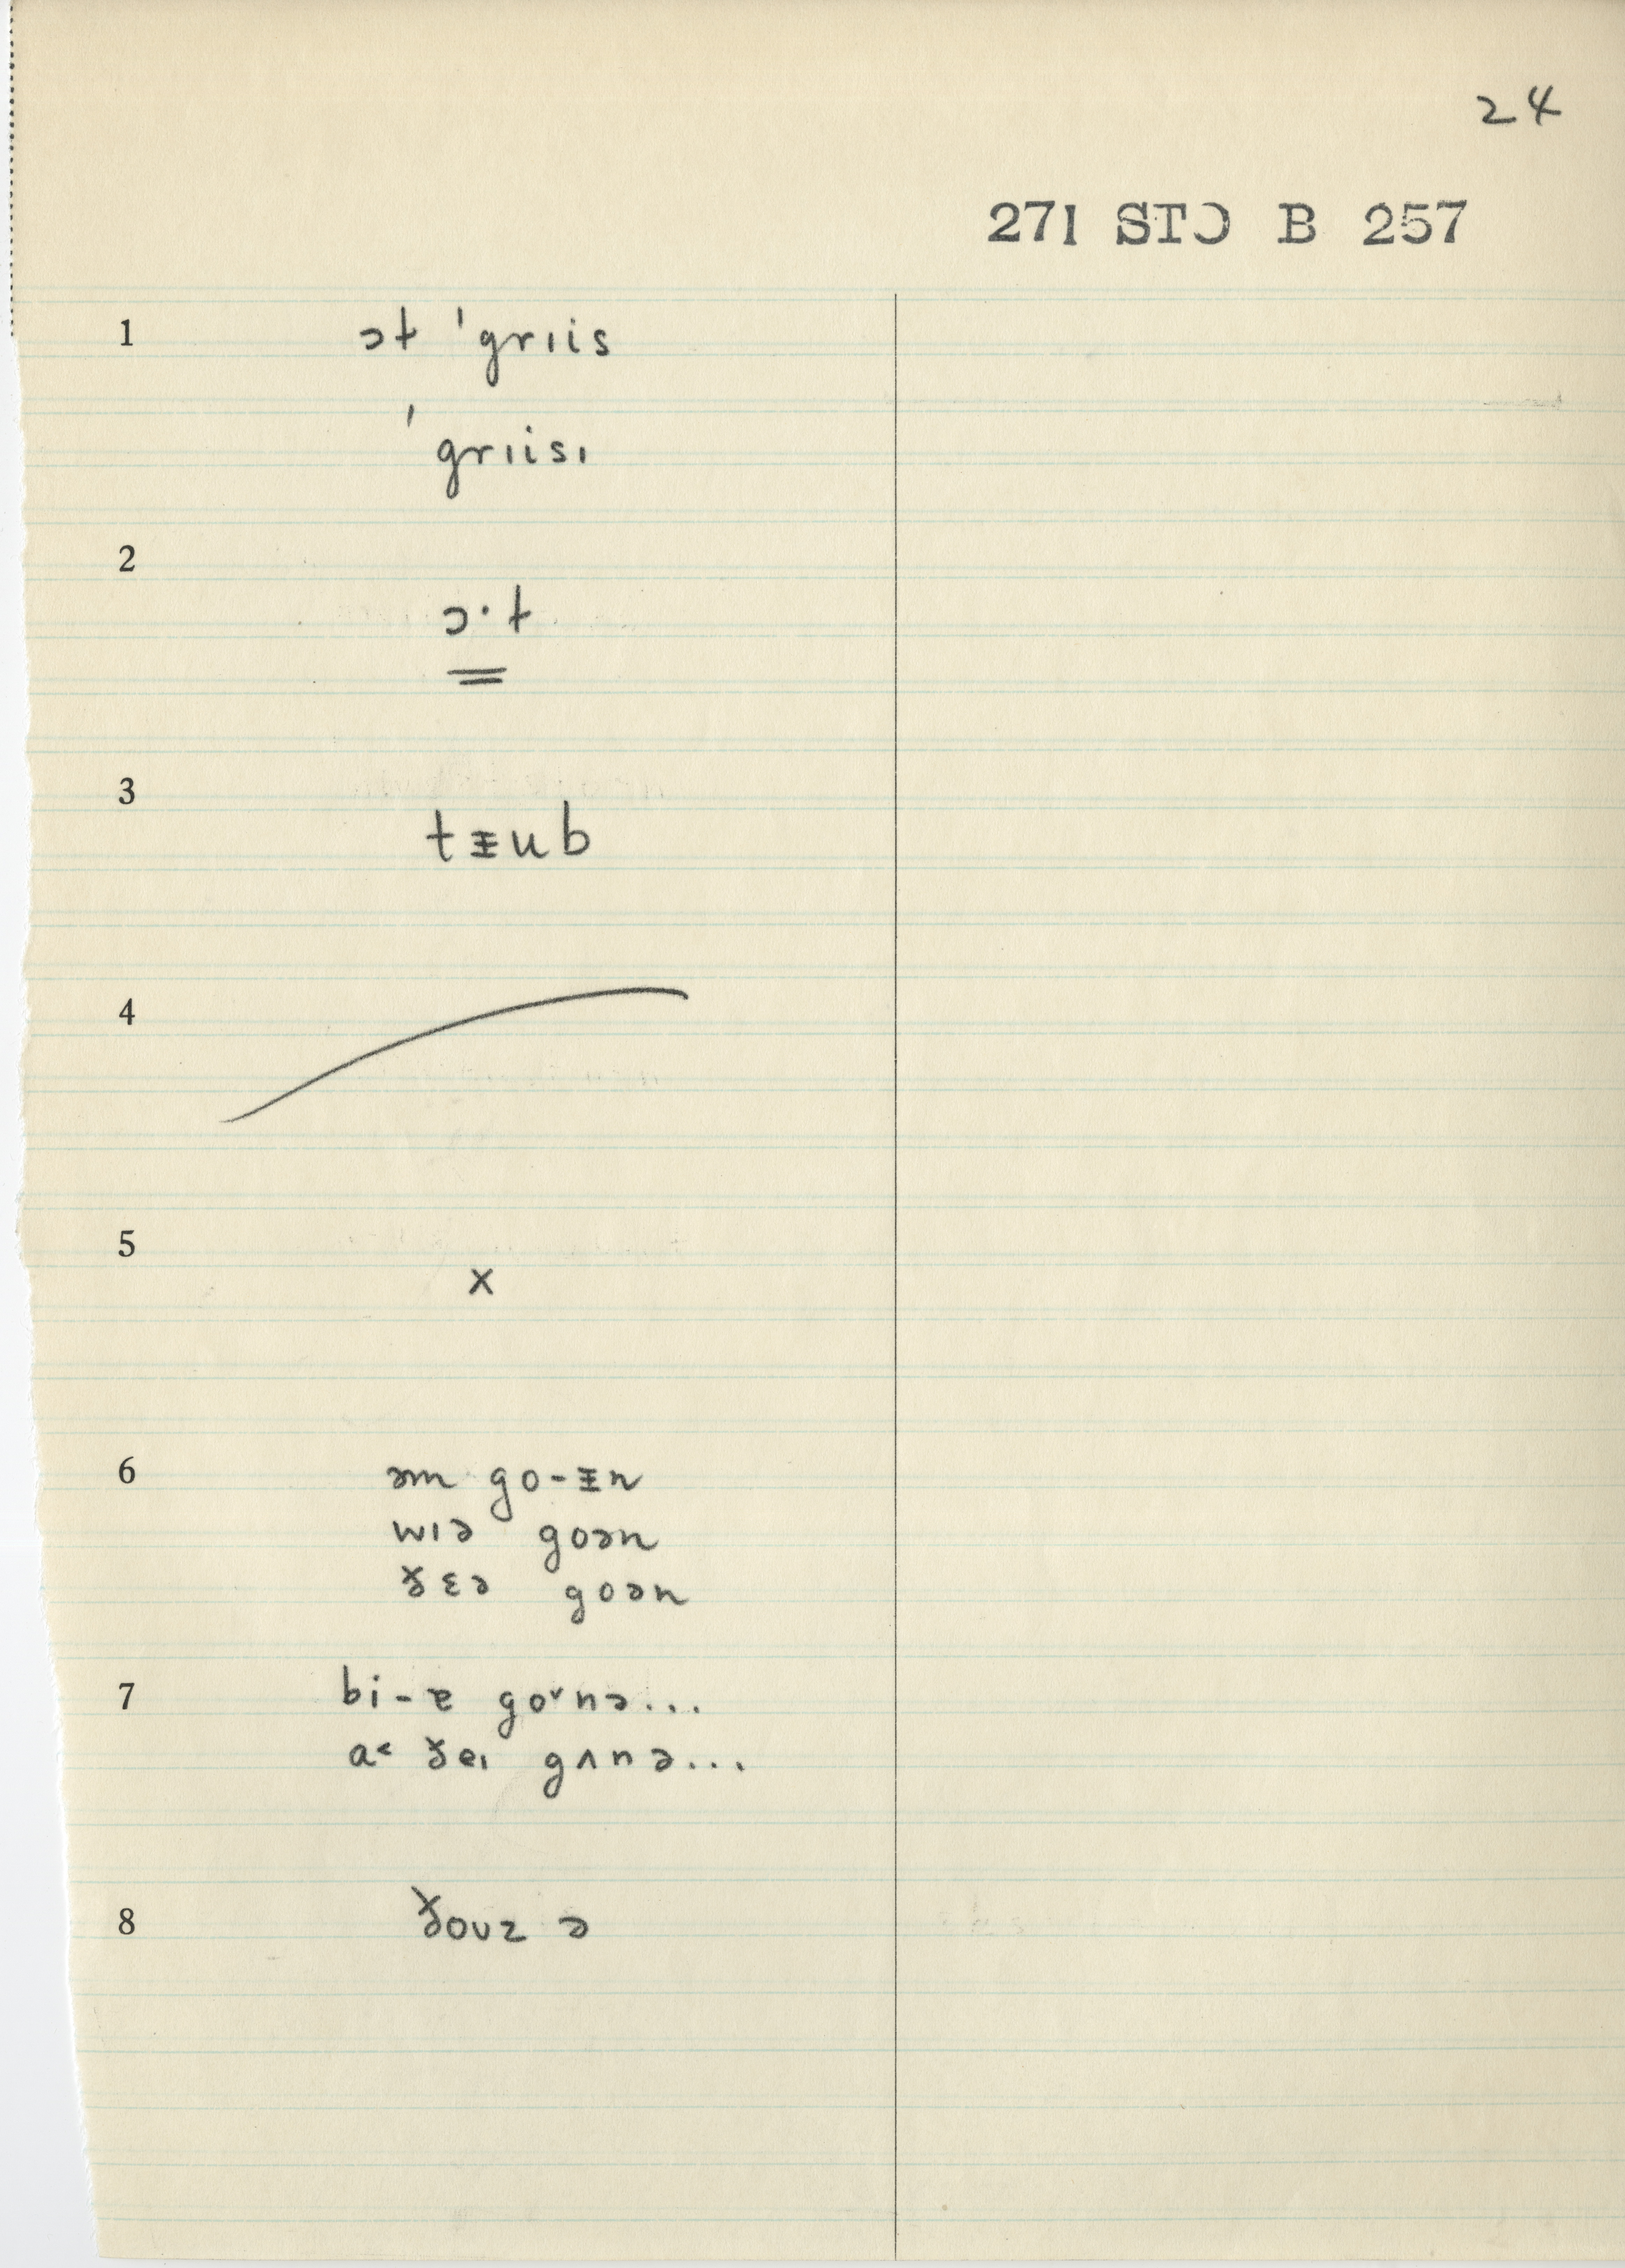 24
271 STƆ B 257
1 ɔt 'grɪis
'grɪisɪ
2 ɔ·t
3 tᵻub
5 x
6 əm go-ᵻn
wɪə goən
ɤ̆ɛə goən
7 bi-ɐ go˅nə...
a˂ ɤ̆eɪ gʌnə...
8 ɤ̆oʊz ə